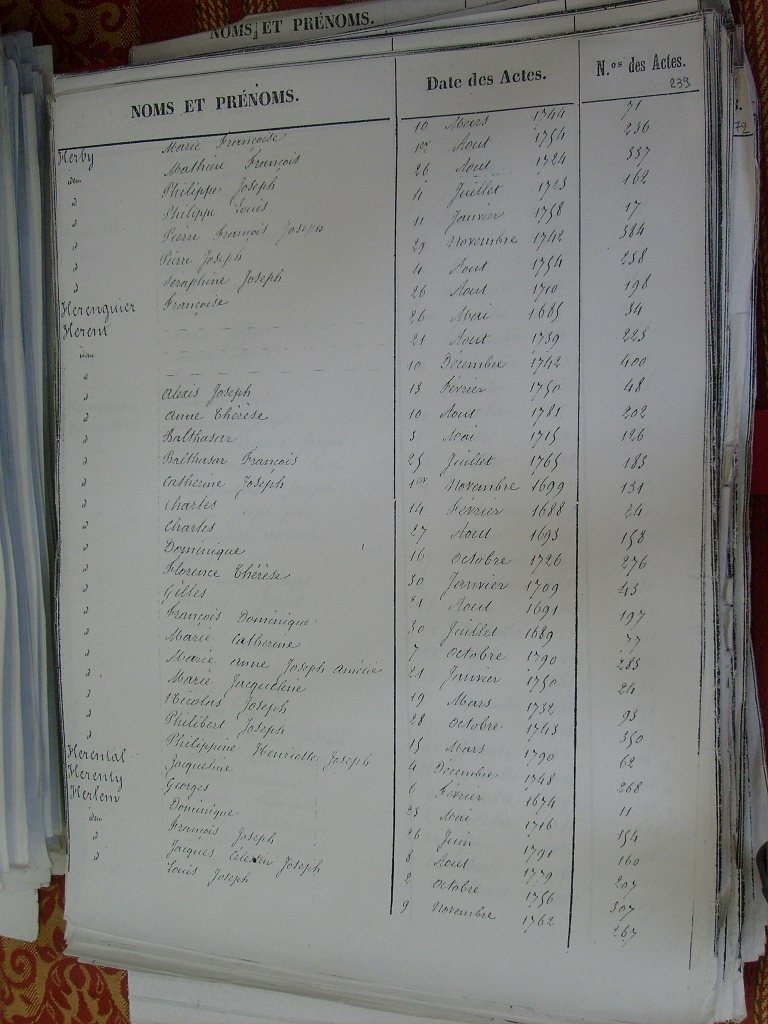 NOMS ET PRÉNOMS.
NOMS ET PRÉNOMS. Date des Actes. N.os des Actes.
239
72
Herby Marie Françoise 10 Mars 1744 71
idem Mathieu François 1er Aout 1754 236
d Philippe Joseph 26 Aout 1724 337
d Philippe Louis 4 Juillet 1723 162
d Pierre François Joseph 11 Janvier 1758 17
d Pierre Joseph 29 Novembre 1742 384
d Seraphine Joseph 4 Aout 1754 238
Herenguier Françoise 26 Aout 1710 198
Herent 26 Mai 1685 34
idem 21 Aout 1739 223
d 10 Décembre 1742 400
d Alexis Joseph 13 Février 1750 48
d Anne Thérèse 10 Aout 1781 202
d Balthasar 5 Mai 1715 126
d Balthasar François 25 Juillet 1765 183
d Catherine Joseph 1er Novembre 1699 131
d Charles 14 Février 1688 24
d Charles 27 Aout 1693 158
d Dominique 16 Octobre 1726 276
d Florence Thérèse 30 Janvier 1709 43
d Gilles 21 Aout 1691 197
d François Dominique 30 Juillet 1689 77
d Marie Catherine 7 Octobre 1790 283
d Marie Anne Joseph Amélie 21 Janvier 1750 24
d Marie Jacqueline 19 Mars 1732 93
d Nicolas Joseph 28 Octobre 1743 350
d Philibert Joseph 15 Mars 1790 62
d Philippine Henriette Joseph 4 Décembre 1748 268
Herental Jacqueline 6 Février 1674 11
Herenty Georges 23 Mai 1716 154
Herlem Dominique 26 Juin 1791 160
idem François Joseph 8 Aout 1779 207
d Jacques Célestin Joseph 2 Octobre 1756 307
d Louis Joseph 9 Novembre 1762 267